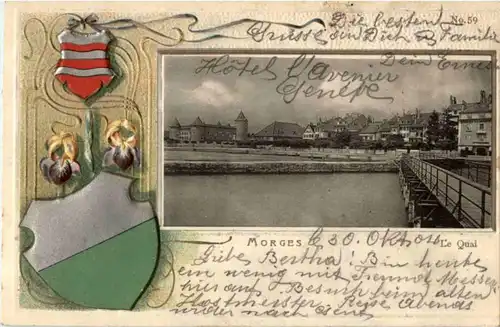 No. 59
Die besten
Grüsse an Dich u Familie
Dein Ernest
Hôtel l'Avenir
Genève
MORGES
Le Quai
d. 30. Okt.
Liebe Bertha! Bin heute
ein wenig mit Freund Messer
hier auf Besuch beim alten
Reise Abends
wieder nach Genf